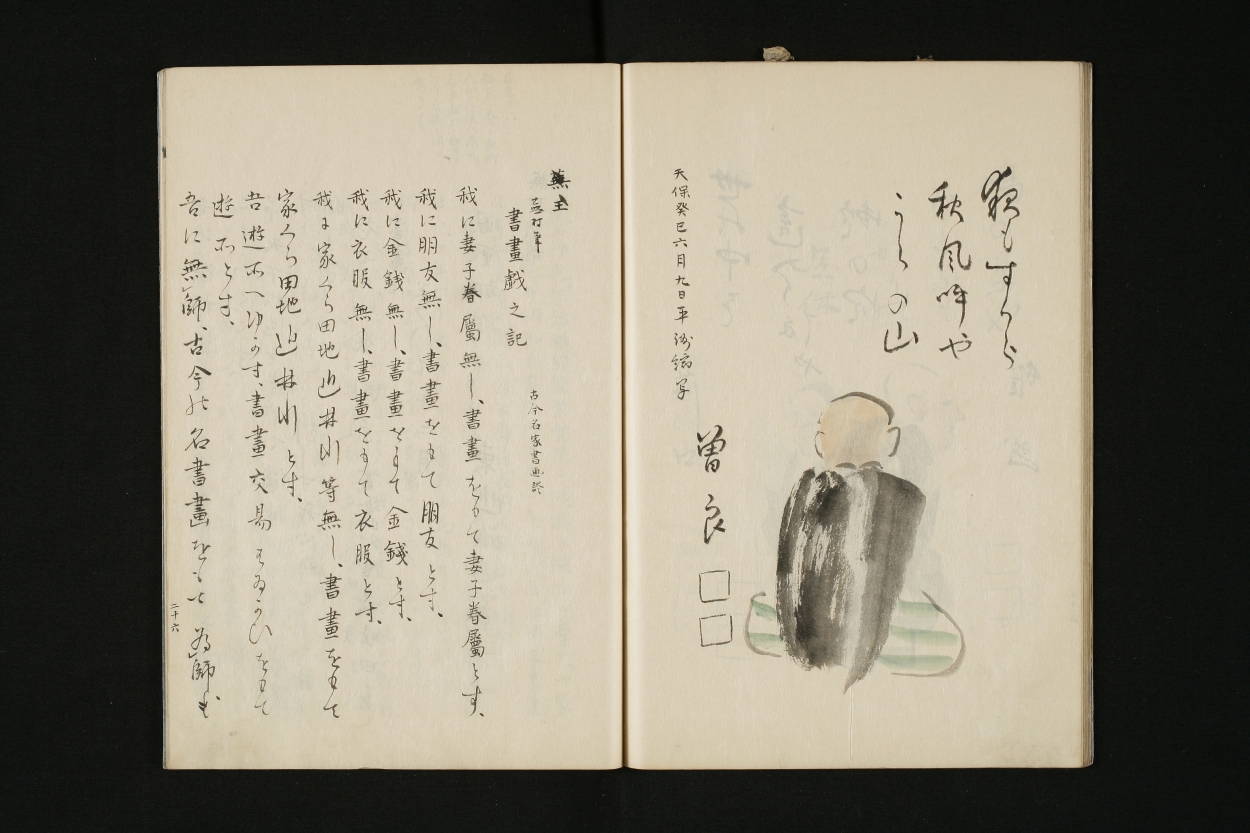 夜もすから
秋風听や
うらの山
曽良
天保癸巳六月九日平
蕪
村
書畫戯之記
古今名家書画談
我に妻子眷屬無し、書畫をもて妻子眷屬とす、
我に朋友無し、書畫をもて朋友とす、
我に金銭無し、書畫をもて金錢とす、
我に衣服無し、書畫をもて衣服とす、
我に家くら田地山林川等無し、書畫をもて
家くら田地山林川とす、
吾遊所へゆかす、書畫交易をもて
遊所とす、
吾に無師、古今の名書畫をもて為師
二十六